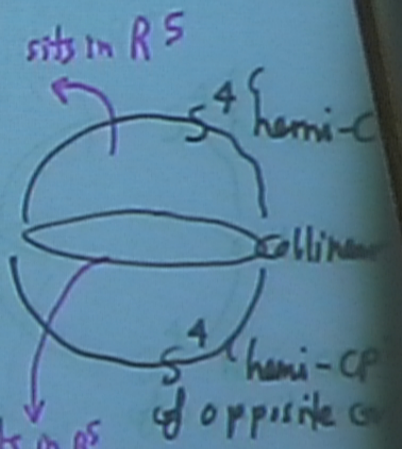 sits in R⁵
S⁴ (hemi-C
Collinea
S⁴ (hemi-CP
of opposite
in R⁵